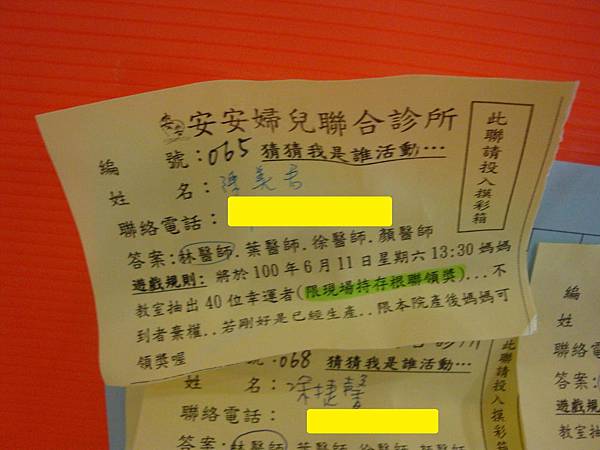 安安婦兒聯合診所
此聯請投入摸彩箱
編　　號：065 猜猜我是誰活動…
姓　　名：
聯絡電話：
答案：林醫師．葉醫師．徐醫師．顏醫師
遊戲規則：將於100年6月11日星期六13:30媽媽
教室抽出40位幸運者(限現場持存根聯領獎)...不
到者棄權..若剛好是已經生產..限本院產後媽媽可
領獎喔
診所
號：068 猜猜我是誰活動…
姓　　名：涂捷馨
聯絡電話：
答案：林醫師
此聯請投入摸彩箱
編
姓
聯絡電
答案：
遊戲規
教室抽